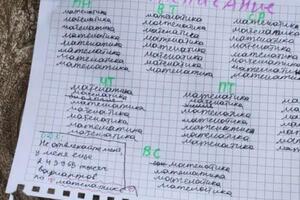 ПН
математика
математика
математика
математика
математика
математика
математика
ВТ
математика
математика
математика
математика
математика
математика
математика
СР
математика
математика
математика
математика
математика
математика
математика
ЧТ
математика
математика
математика
математика
математика
математика
ПТ
математика
математика
математика
математика
математика
математика
ВС
математика
математика
математика
математика
не отвлекайте меня
у меня еще
вариантов
по математике